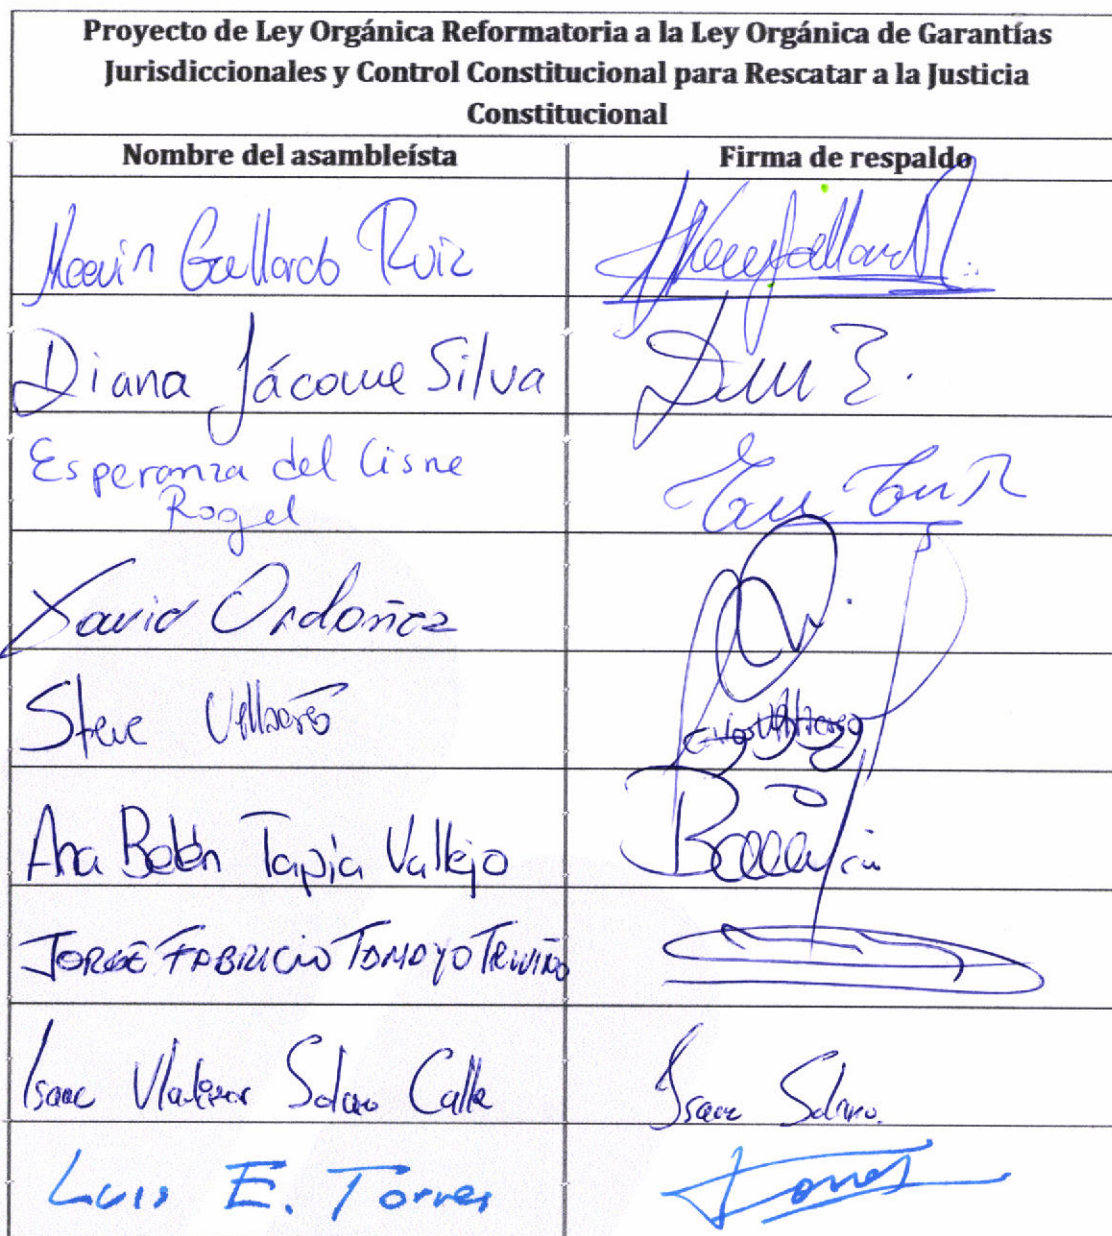 Proyecto de Ley Orgánica Reformatoria a la Ley Orgánica de Garantías
Jurisdiccionales y Control Constitucional para Rescatar a la Justicia
Constitucional
Nombre del asambleísta Firma de respaldo
Kevin Gallardo Ruiz
Diana Jácome Silva
Esperanza del Cisne
Rogel
Xavier Ordoñez
Steve
Ana Belén Tapia Vallejo
JORGE FABRICIO TAMAYO TRIVIÑO
Isaac Solano Calle Isaac Solano.
Luis E. Torres Torres